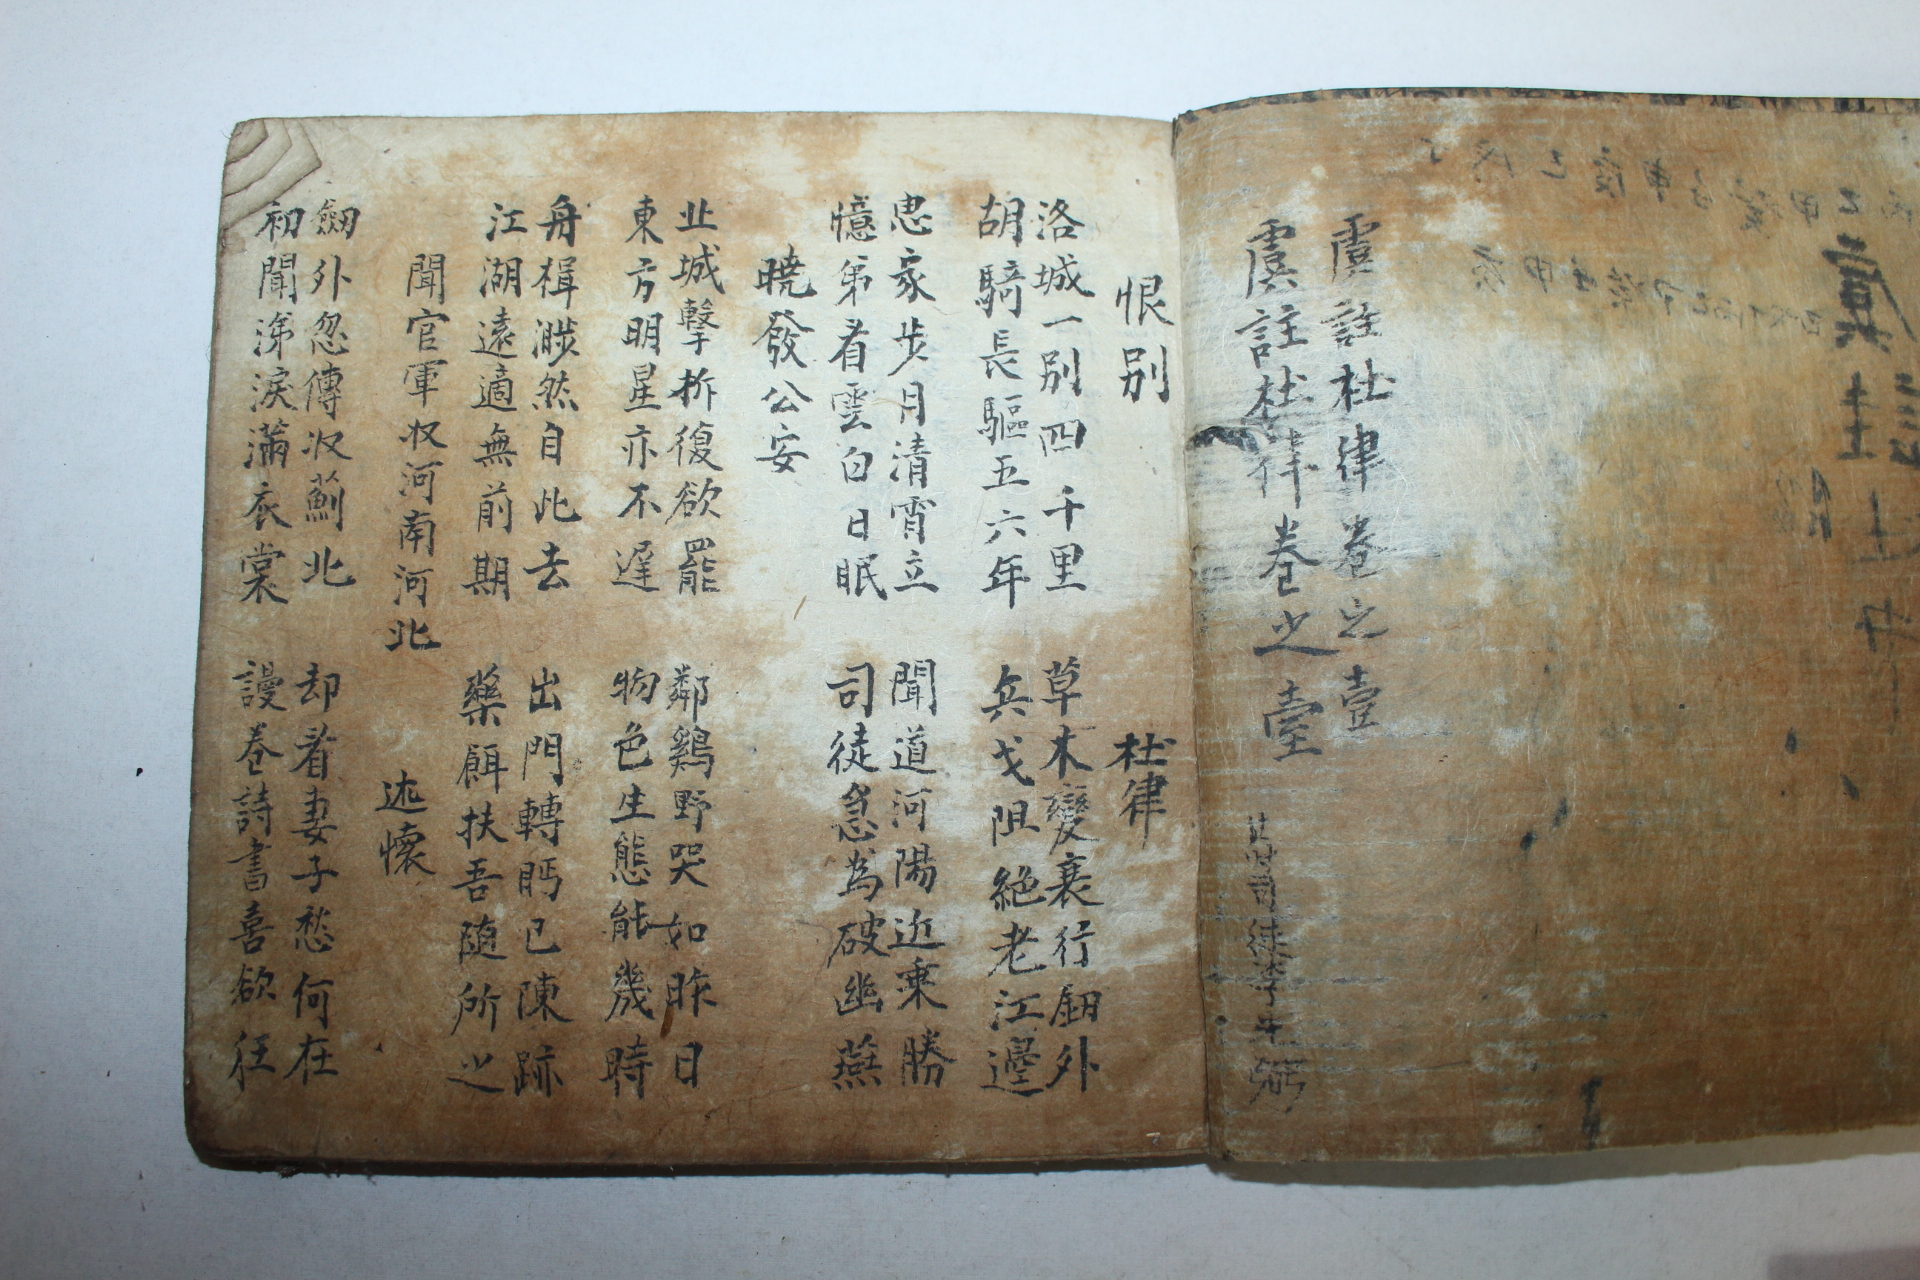 虞註杜律卷之壹
虞註杜律卷之壹
恨別 杜律
洛城一別四千里 草木變衰行釰外
胡騎長驅五六年 兵戈阻絶老江邊
思家步月清霄立 聞道河陽近乘勝
憶弟看雲白日眠 司徒急為破幽燕
曉發公安
北城擊柝復欲罷 鄰鷄野哭如昨日
東方明星亦不遲 物色生態能幾時
舟楫渺然自此去 出門轉眄已陳跡
江湖遠適無前期 藥餌扶吾随所之
聞官軍収河南河北 述懷
劔外忽傳収薊北 却看妻子愁何在
初聞涕淚滿衣裳 謾卷詩書喜欲狂